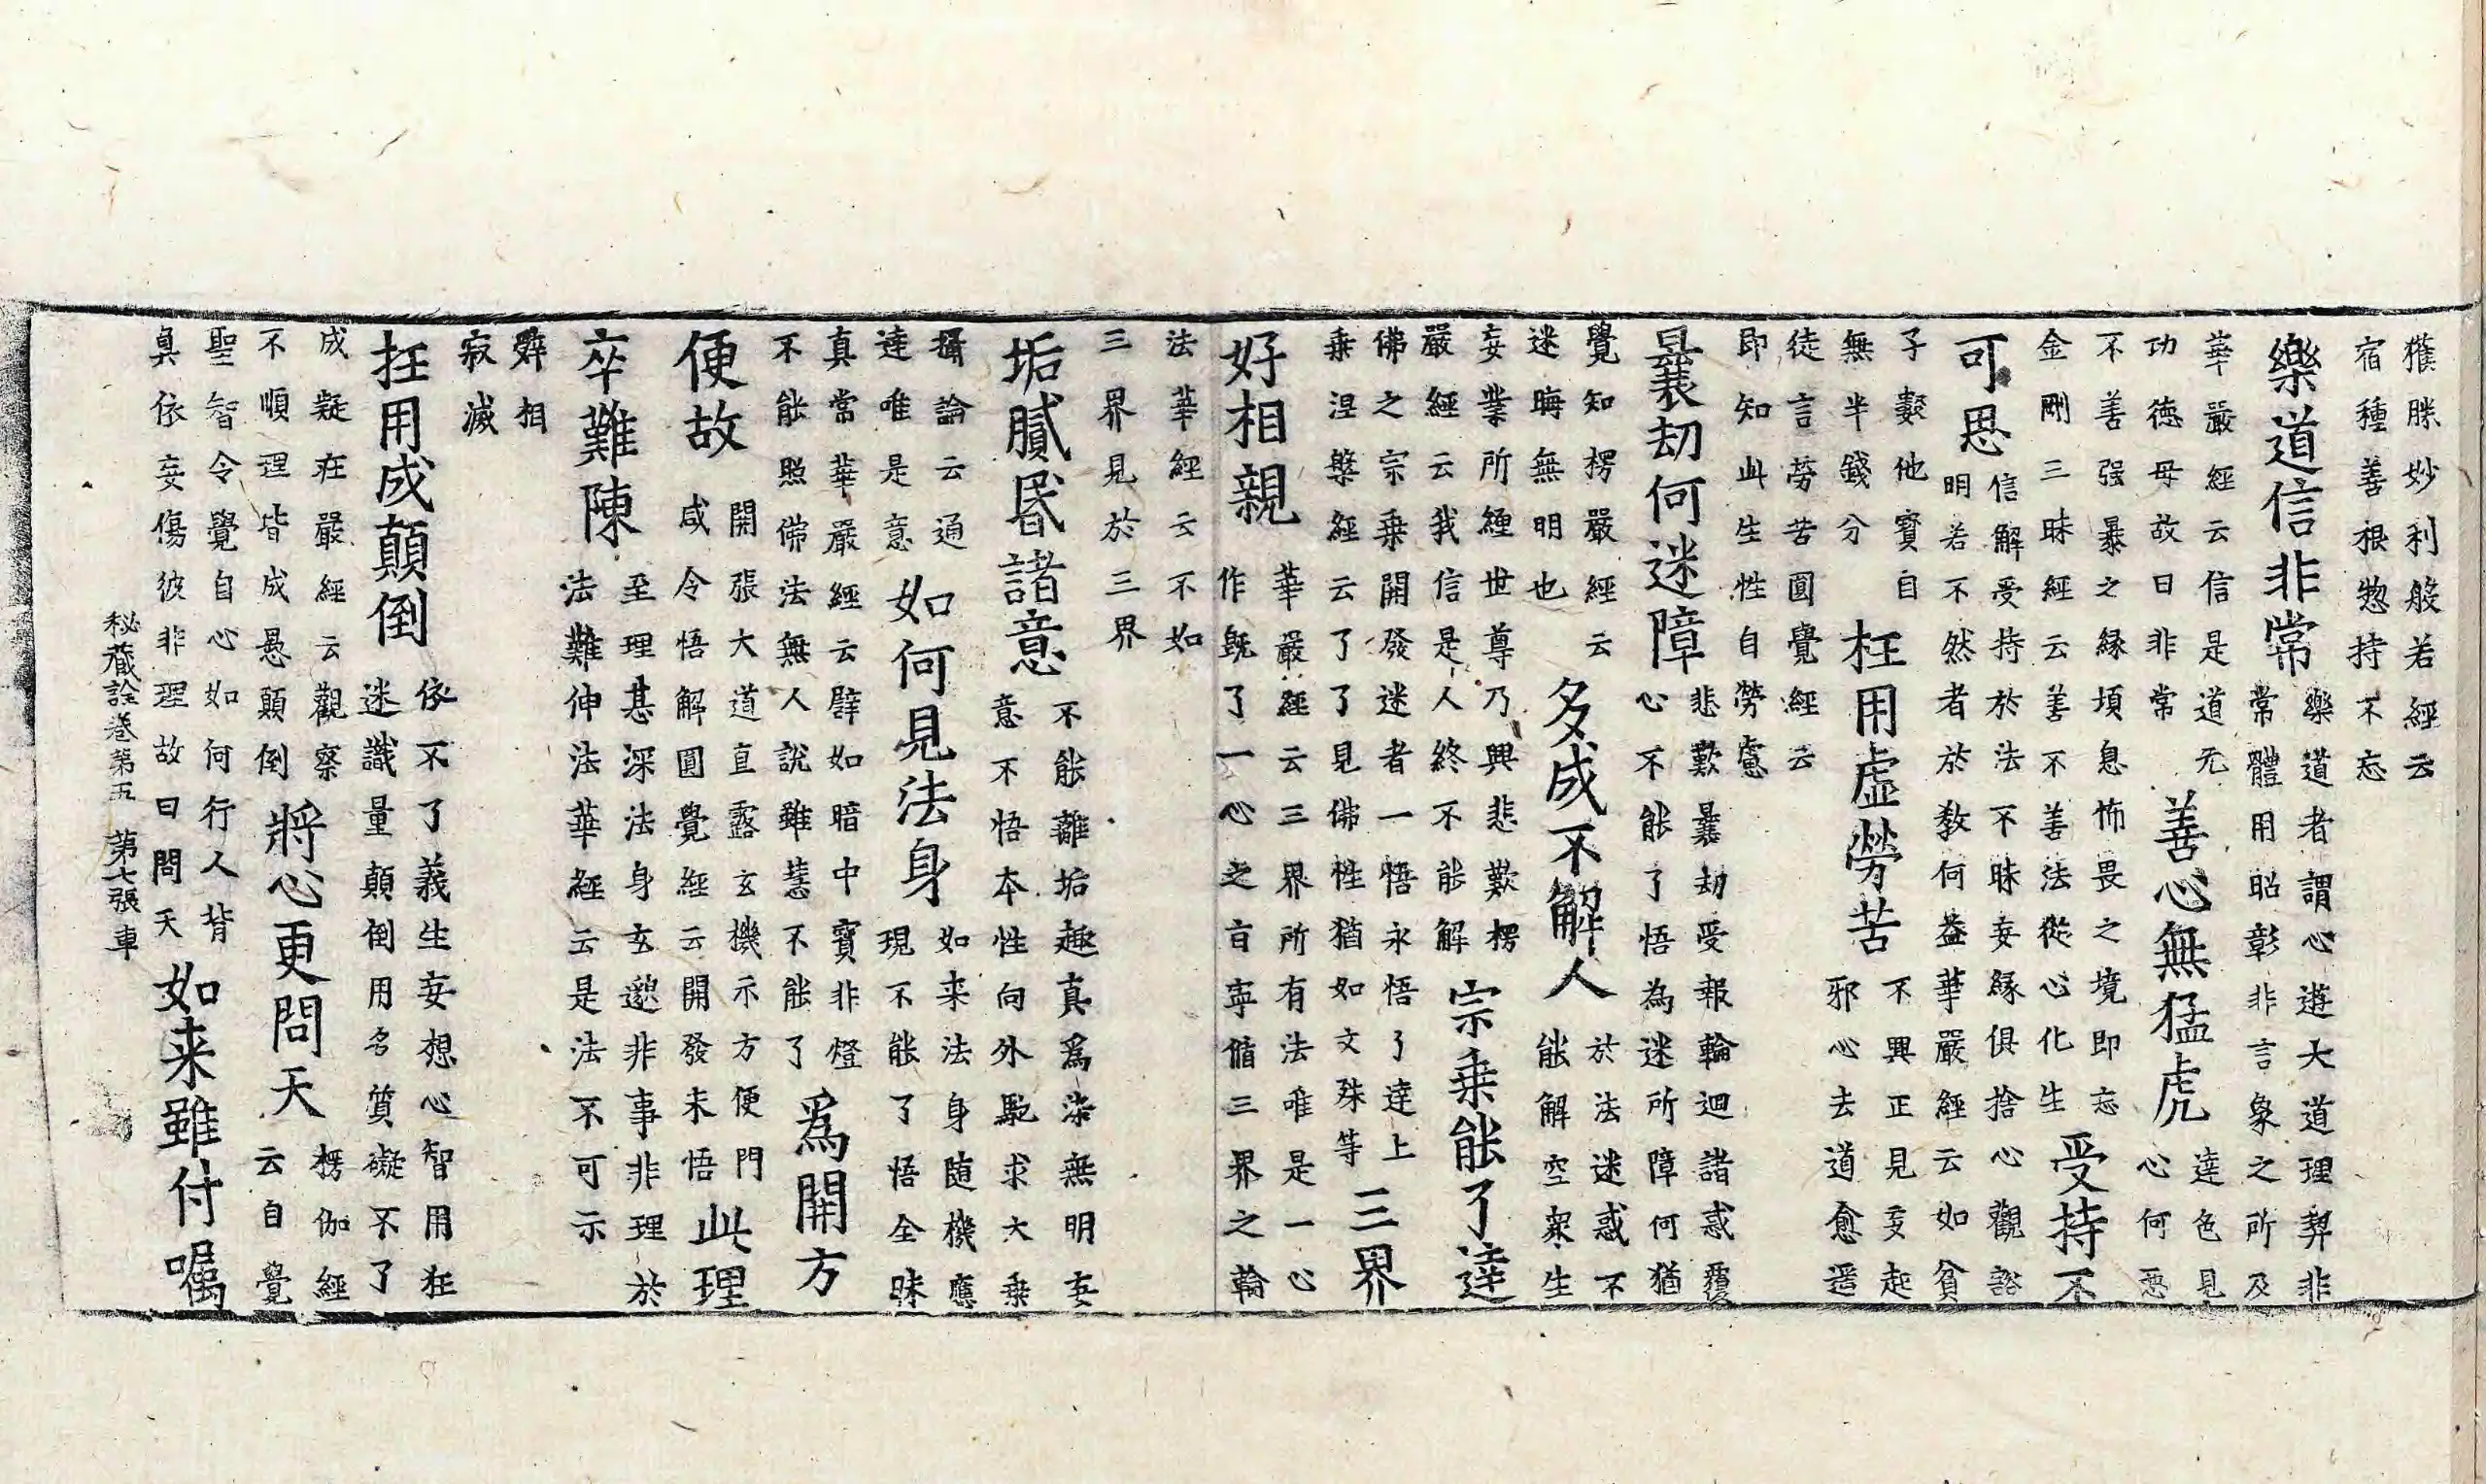 獲勝妙利般若經云
宿種善根惣持不忘
樂道信非常
樂道者謂心遊大道理契非
常體用昭彰非言象之所及
華嚴經云信是道元
功德母故曰非常
善心無猛虎
達色見
心何惡
不善强暴之緣頃息怖畏之境即忘
金剛三昧經云善不善法從心化生
受持不
可思
信解受持於法不昧妄緣俱捨心觀豁
明若不然者於教何益華嚴經云如貧
子數他寳自
無半錢分
枉用虛勞苦
不興正見妄起
邪心去道愈遥
徒言勞苦圓覺經云
即知此生性自勞慮
曩劫何迷障
悲歎曩劫受報輪迴諸惑覆
心不能了悟為迷所障何猶
覺知楞嚴經云
迷晦無明也
多成不解人
於法迷惑不
能解空衆生
妄業所纏世尊乃興悲歎楞
嚴經云我信是人終不能解
宗乗能了達
佛之宗乗開發迷者一悟永悟了達上
乗涅槃經云了了見佛性猶如文殊等
三界
好相親
華嚴經云三界所有法唯是一心
作既了一心之旨寧循三界之輪
法華經云不如
三界見於三界
垢膩昬諸意
不能離垢趣真爲染無明妄
意不悟本性向外馳求大乗
攝論云通
達唯是意
如何見法身
如来法身随機應
現不能了悟全昧
真當華嚴經云譬如暗中寳非燈
不能照佛法無人說雖慧不能了
爲開方
便故
開張大道直露玄機示方便門
咸令悟解圓覺經云開發未悟
此理
卒難陳
至理甚深法身玄邈非事非理於
法難伸法華經云是法不可示
辝相
寂滅
枉用成顛倒
依不了義生妄想心智用狂
迷識量顛倒用名質礙不了
成疑在嚴經云觀察
不順理皆成愚顛倒
將心更問天
楞伽經
云自覺
聖智令覺自心如何行人背
真依妄傷彼非理故曰問天
如来雖付囑
秘藏詮卷第五 第七張 車